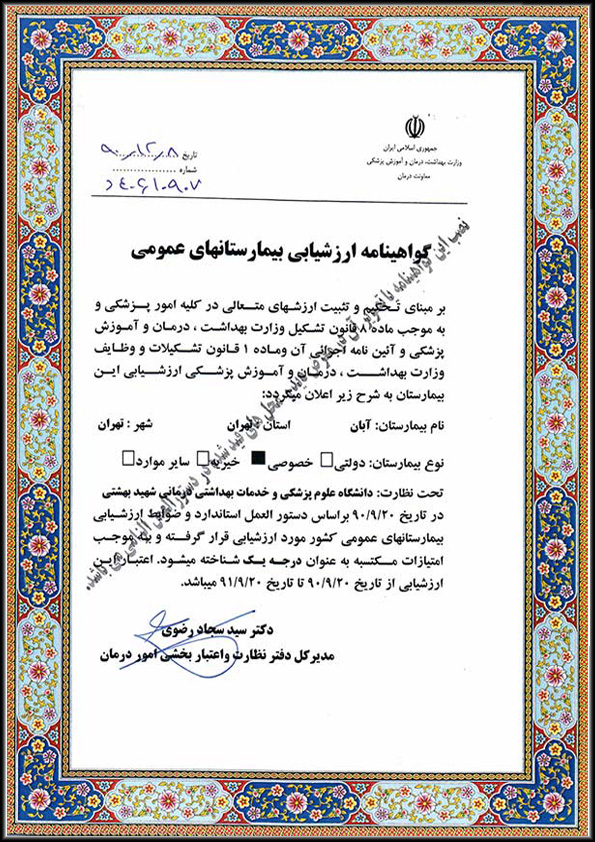 جمهوری اسلامی ایران
وزارت بهداشت، درمان و آموزش پزشکی
معاونت درمان
تاریخ ۹۰/۱۲/۰۸
شماره
د۴۰۶۱۰۹۰۷
گواهینامه ارزشیابی بیمارستانهای عمومی
بر مبنای تحکیم و تثبیت ارزشهای متعالی در کلیه امور پزشکی و
به موجب ماده ۸ قانون تشکیل وزارت بهداشت ، درمان و آموزش
پزشکی و آئین نامه اجرائی آن وماده ۱ قانون تشکیلات و وظایف
وزارت بهداشت ، درمان و آموزش پزشکی ارزشیابی این
بیمارستان به شرح زیر اعلان میگردد:
نام بیمارستان: آبان استان : تهران شهر : تهران
نوع بیمارستان: دولتی☐ خصوصی■ خیریه☐ سایر موارد☐
تحت نظارت: دانشگاه علوم پزشکی و خدمات بهداشتی درمانی شهید بهشتی
در تاریخ ۹۰/۹/۲۰ براساس دستور العمل استاندارد و ضوابط ارزشیابی
بیمارستانهای عمومی کشور مورد ارزشیابی قرار گرفته و به موجب
امتیازات مکتسبه به عنوان درجه یک شناخته میشود. اعتبار این
ارزشیابی از تاریخ ۹۰/۹/۲۰ تا تاریخ ۹۱/۹/۲۰ میباشد.
دکتر سید سجاد رضوی
مدیرکل دفتر نظارت واعتبار بخشی امور درمان
نصب این گواهینامه یا تصویر آن در